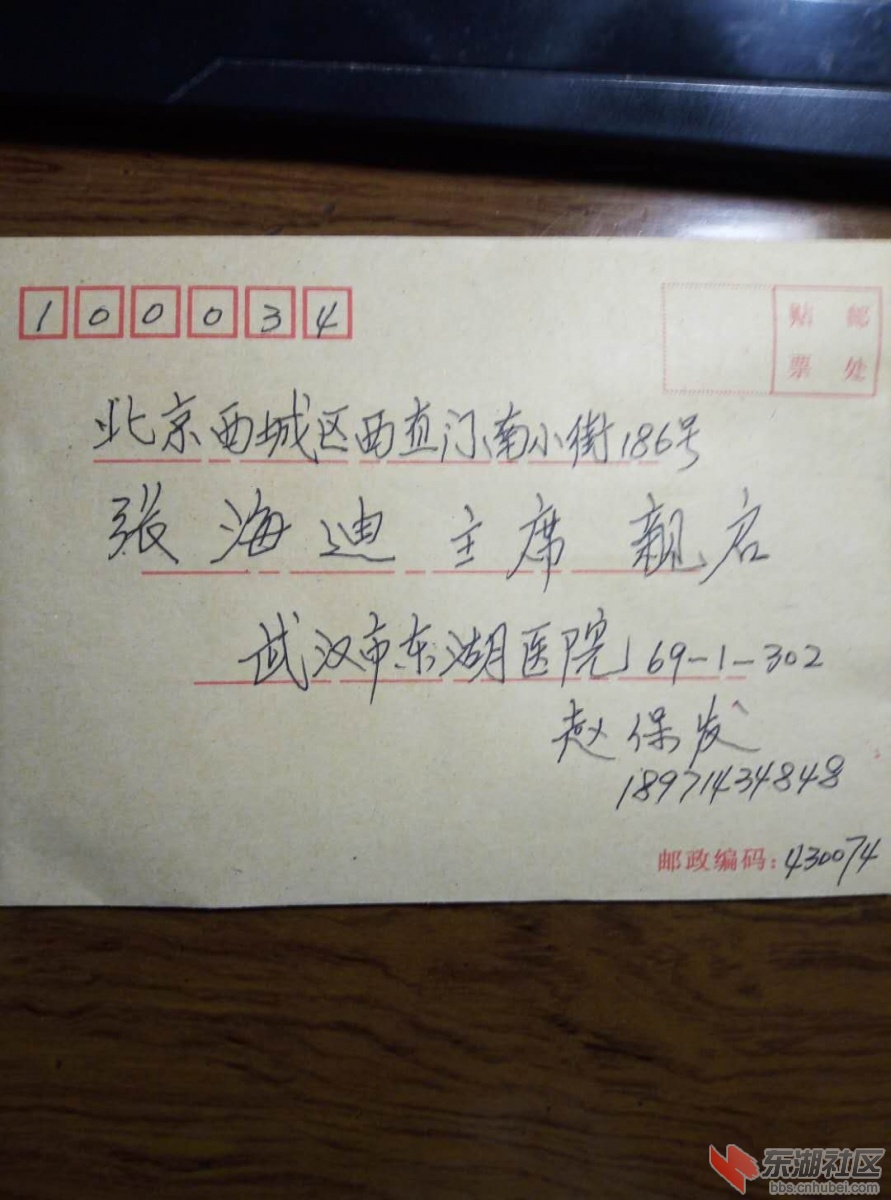 100034
贴 邮
票 处
北京西城区西直门南小街186号
张海迪主席亲启
武汉市东湖医院169-1-302
赵保发
18971434848
邮政编码：430074
东湖社区
bbs.cnhubei.com